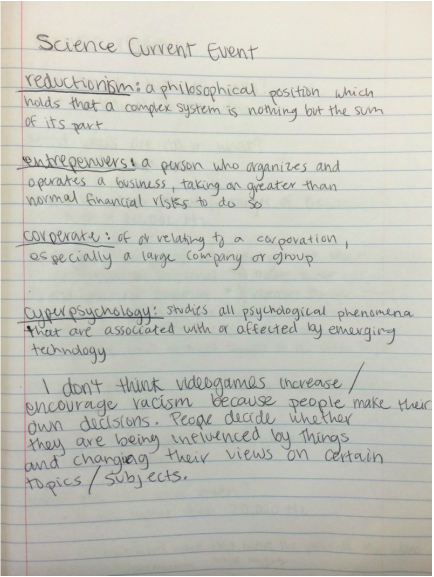 Science Current Event
reductionism: a philosophical position which
holds that a complex system is nothing but the sum
of its part
entrepenuers: a person who organizes and
operates a business, taking on greater than
normal financial risks to do so
corporate: of or relating to a corporation,
especially a large company or group
cyperpsychology: studies all psychological phenomena
that are associated with or affected by emerging
technology
I don't think videogames increase /
encourage racism because people make their
own decisions. People decide whether
they are being influenced by things
and changing their views on certain
topics / subjects.